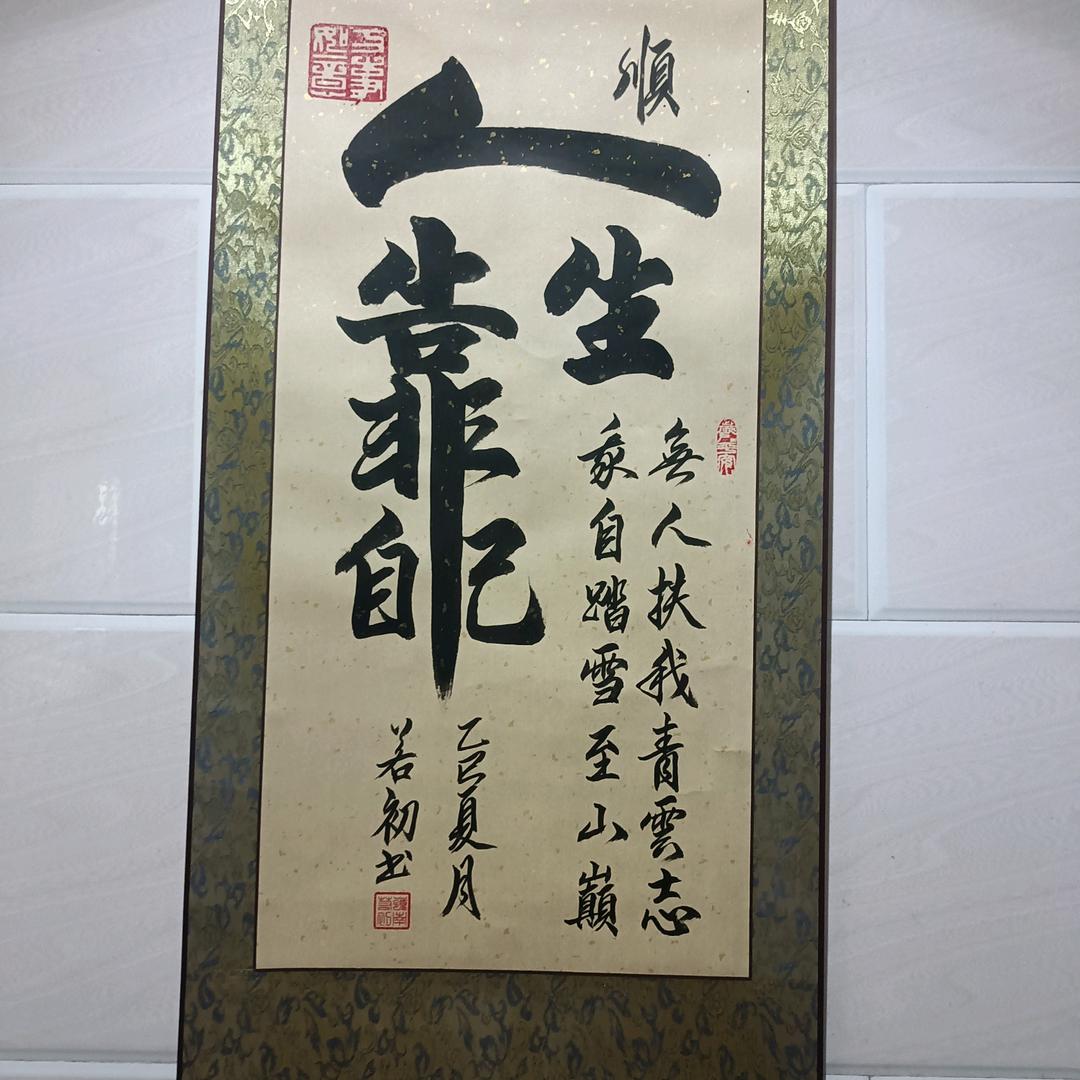 順
人生
靠自己
無人扶我青雲志
我自踏雪至山巔
乙巳夏月
若初书